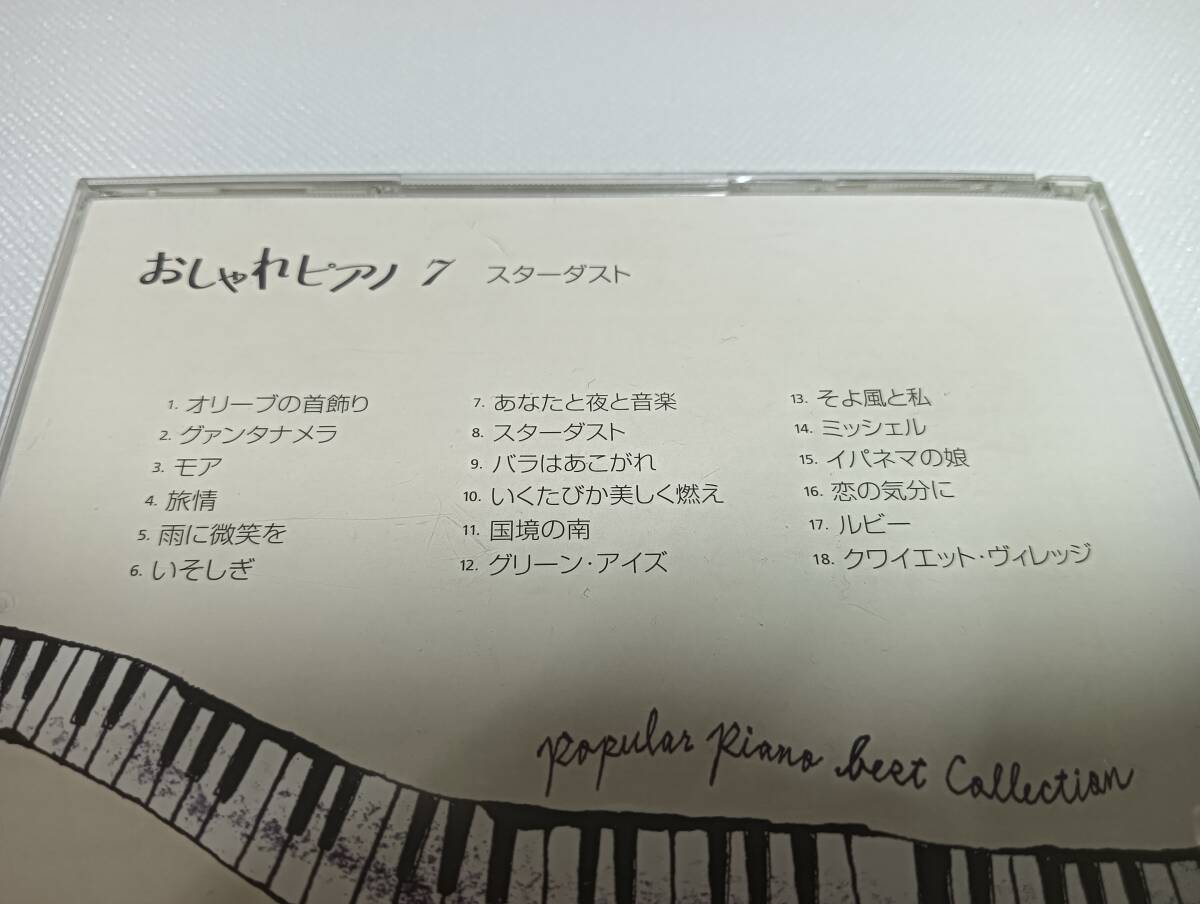 おしゃれピアノ 7 スターダスト
1. オリーブの首飾り
2. グァンタナメラ
3. モア
4. 旅情
5. 雨に微笑を
6. いそしぎ
7. あなたと夜と音楽
8. スターダスト
9. バラはあこがれ
10. いくたびか美しく燃え
11. 国境の南
12. グリーン・アイズ
13. そよ風と私
14. ミッシェル
15. イパネマの娘
16. 恋の気分に
17. ルビー
18. クワイエット・ヴィレッジ
Popular Piano best Collection